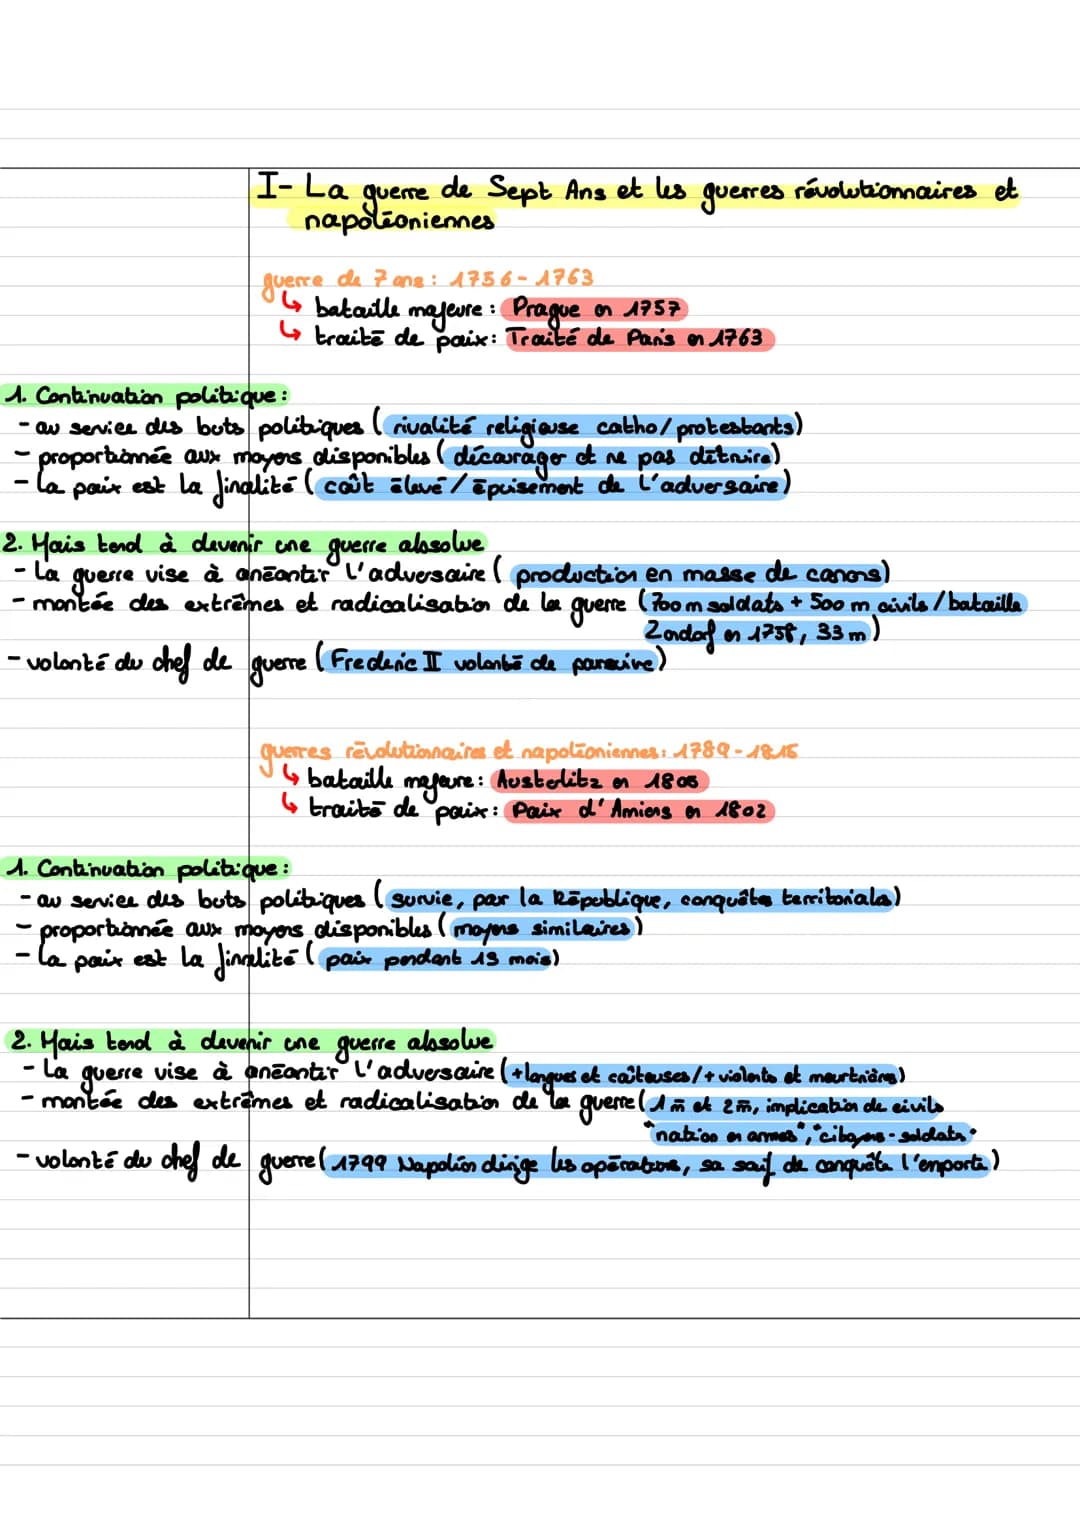 I- La guerre de Sept Ans et les guerres révolutionnaires et
napoléoniennes
guerre de 7 ans : 1756-1763
↳ bataille majeure : Prague en 1757
↳ traité de paix : Traité de Paris en 1763
1. Continuation politique :
- au service des buts politiques (rivalité religieuse catho/protestants)
- proportionnée aux moyens disponibles (décourager et ne pas détruire)
- la paix est la finalité (coût élevé / épuisement de l'adversaire)
2. Mais tend à devenir une guerre absolue
- La guerre vise à anéantir l'adversaire (production en masse de canons)
- montée des extrêmes et radicalisation de la guerre (700 m soldats + 500 m civils / bataille
Zondorf en 1758, 33 m)
- volonté du chef de guerre (Frederic II volonté de)
guerres révolutionnaires et napoléoniennes : 1789-1815
↳ bataille majeure : Austerlitz en 1805
↳ traité de paix : Paix d'Amiens en 1802
1. Continuation politique :
- au service des buts politiques (survie, par la République, conquête territoriale)
- proportionnée aux moyens disponibles (moyens similaires)
- la paix est la finalité (paix pendant 13 mois)
2. Mais tend à devenir une guerre absolue
- La guerre vise à anéantir l'adversaire (+ longues et coûteuses / + violents et meurtrière)
- montée des extrêmes et radicalisation de la guerre (1 m̄ et 2 m̄, implication de civils
"nation en armes", "citoyens-soldats"
- volonté du chef de guerre (1799 Napoléon dirige les opérations, sa soif de conquête l'emporte)